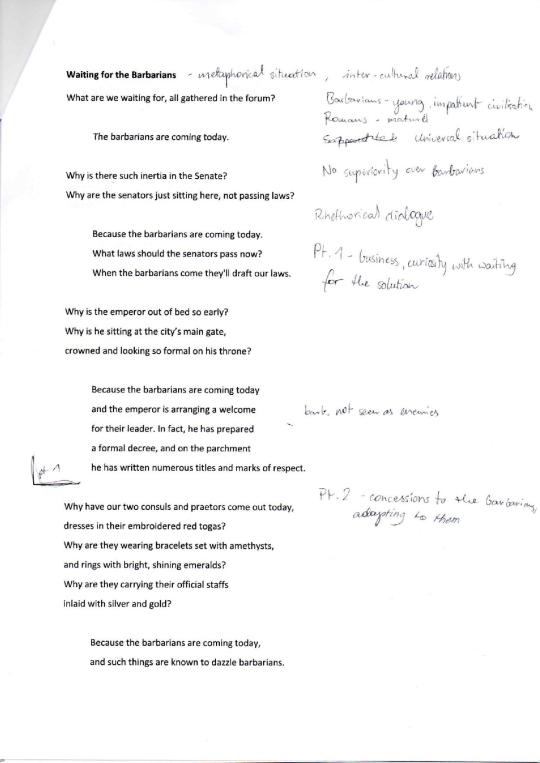 Waiting for the Barbarians - metaphorical situation, inter-cultural relations
What are we waiting for, all gathered in the forum?
Barbarians - young, impatient civilisation
Romans - matured
The barbarians are coming today.
universal situation
Why is there such inertia in the Senate?
No superiority over barbarians
Why are the senators just sitting here, not passing laws?
Rhethorical dialogue
Because the barbarians are coming today.
What laws should the senators pass now?
Pt. 1 - business, curiosity with waiting
When the barbarians come they'll draft our laws.
for the solution
Why is the emperor out of bed so early?
Why is he sitting at the city's main gate,
crowned and looking so formal on his throne?
Because the barbarians are coming today
and the emperor is arranging a welcome
barb. not seen as enemies
for their leader. In fact, he has prepared
a formal decree, and on the parchment
pt 1
he has written numerous titles and marks of respect.
Pt. 2 - concessions to the barbarians,
adapting to them
Why have our two consuls and praetors come out today,
dresses in their embroidered red togas?
Why are they wearing bracelets set with amethysts,
and rings with bright, shining emeralds?
Why are they carrying their official staffs
inlaid with silver and gold?
Because the barbarians are coming today,
and such things are known to dazzle barbarians.